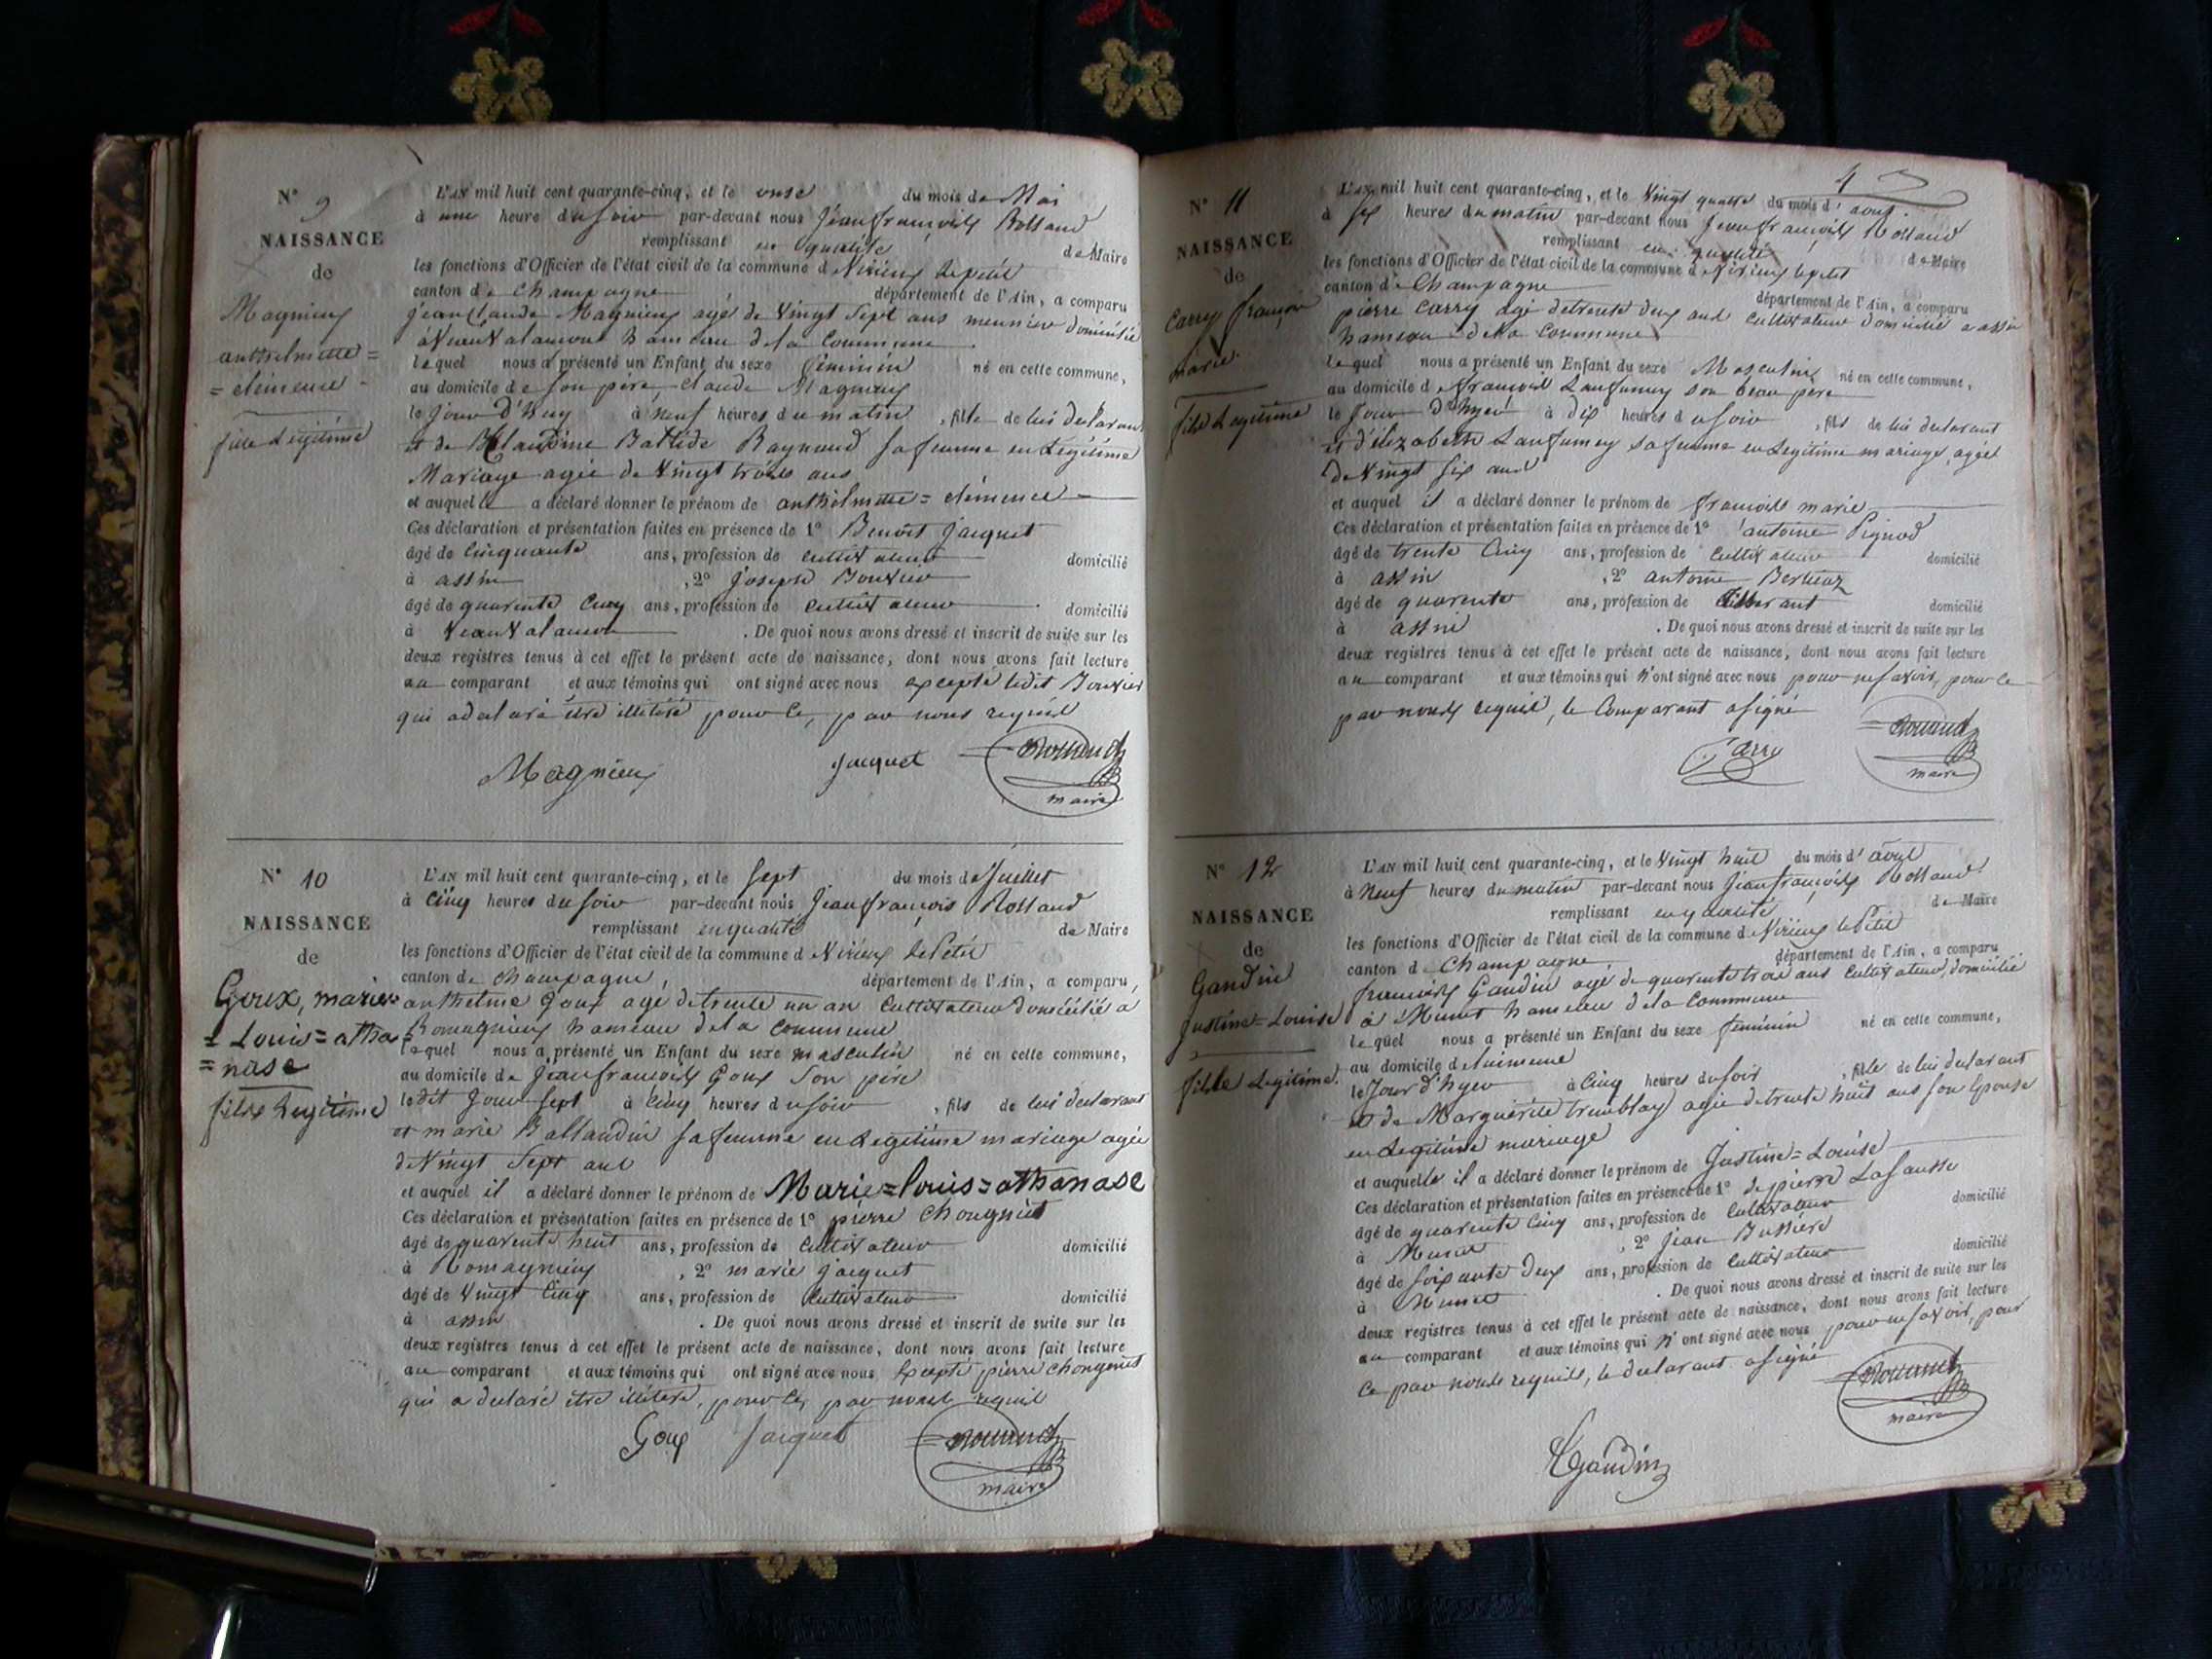 N° 9
NAISSANCE
de
Magnieux
anthelmette =
= clémence -
fille Légitime
L'AN mil huit cent quarante-cinq, et le onse du mois de Mai
à une heure du soir par-devant nous Jean françois Rolland
remplissant en qualité de Maire
les fonctions d'Officier de l'état civil de la commune d Virieux le petit
canton de Champagne département de l'Ain, a comparu
jean Claude Magnieux agé de vingt sept ans meunier domicilié
hameau de la Commune
lequel nous a présenté un Enfant du sexe féminin né en cette commune,
au domicile de son pere Claude Magnieux
le jour d'huy à neuf heures du matin , fille de lui declarant
et de Battide Raynaud sa femme en Légitime
Mariage agée de vingt trois ans
et auquel a déclaré donner le prénom de anthelmette = clémence
Ces déclaration et présentation faites en présence de 1° Benoit Jacquet
âgé de Cinquante ans, profession de cultivateur domicilié
à assin , 2° Joseph Bouvier
âgé de quarente Cinq ans, profession de cultivateur domicilié
à . De quoi nous avons dressé et inscrit de suite sur les
deux registres tenus à cet effet le présent acte de naissance, dont nous avons fait lecture
au comparant et aux témoins qui ont signé avec nous excepté ledit Bouvier
qui a declaré être illétéré pour ce, par nous requis
Magnieux Jacquet Rolland
maire
N° 10
NAISSANCE
de
Goux, marie=
= Louis = atha=
= nase
fils Legitime
L'AN mil huit cent quarante-cinq, et le sept du mois de Juillet
à cinq heures du soir par-devant nous Jean françois Rolland
remplissant en qualité de Maire
les fonctions d'Officier de l'état civil de la commune d Virieux le Petit
canton de champagne, département de l'Ain, a comparu,
anthelme Goux agé de trente un an Cultivateur domicilié a
Romagnieux hameau de la Commune
lequel nous a présenté un Enfant du sexe masculin né en cette commune,
au domicile de Jean francois Goux Son pére
le dit jour sept à cinq heures du soir , fils de lui declarant
et marie Ballandin sa femme en Legitime mariage agée
de Vingt Sept ans
et auquel il a déclaré donner le prénom de Marie=Louis=athanase
Ces déclaration et présentation faites en présence de 1° pierre Chongniet
âgé de quarente huit ans, profession de Cultivateur domicilié
à Romagnieux , 2° marie jacquet
âgé de Vingt Cinq ans, profession de Cultivateur domicilié
à assin . De quoi nous avons dressé et inscrit de suite sur les
deux registres tenus à cet effet le présent acte de naissance, dont nous avons fait lecture
au comparant et aux témoins qui ont signé avec nous Excepté pierre Chongniet
qui a declaré être illétéré, pour ce, par nous requis
Goux Jacquet Rolland
maire
4
N° 11
NAISSANCE
de
Carry françois
marie.
fils Legitime
L'AN mil huit cent quarante-cinq, et le Vingt quatre du mois d' avril.
à six heures du matin par-devant nous Jean françois Rolland
remplissant en qualité de Maire
les fonctions d'Officier de l'état civil de la commune d Virieux le petit
canton de Champagne département de l'Ain, a comparu
pierre Carry agé de trente deux ans Cultivateur domicilié a assin
hameau de la Commune
lequel nous a présenté un Enfant du sexe Masculin né en cette commune,
au domicile d françois Lanfumey son beau pere
le Jour d'hyer à dix heures du soir , fils de lui declarant
et d'élizabeth Lanfumey sa femme en Legitime mariage, agée
de Vingt six ans
et auquel il a déclaré donner le prénom de francois marie
Ces déclaration et présentation faites en présence de 1° antoine Pignod
âgé de trente Cinq ans, profession de cultivateur domicilié
à assin , 2° antoine Berlioz
âgé de quarente ans, profession de domicilié
à assin . De quoi nous avons dressé et inscrit de suite sur les
deux registres tenus à cet effet le présent acte de naissance, dont nous avons fait lecture
au comparant et aux témoins qui n'ont signé avec nous pour ne savoir, pour ce
par nous requis, le Comparant a signé
Carry Rolland
maire
N° 12
NAISSANCE
de
Gandin
Justine=Louise
fille Legitime.
L'AN mil huit cent quarante-cinq, et le Vingt huit du mois d' avril
à neuf heures du matin par-devant nous Jean françois Rolland
remplissant en qualité de Maire
les fonctions d'Officier de l'état civil de la commune d Virieux le Petit
canton de Champagne département de l'Ain, a comparu
francois Gandin agé de quarente trois ans Cultivateur, domicilié
à Munet hameau de la Commune
lequel nous a présenté un Enfant du sexe féminin né en cette commune,
au domicile de luimeme
le Jour d'hyer à Cinq heures du soir , fille de lui declarant
et de Marguérite tremblay agée de trente huit ans son Epouse
en Legitime mariage
et auquelle il a déclaré donner le prénom de Justine=Louise
Ces déclaration et présentation faites en présence de 1° de pierre Lafausse
âgé de quarente Cinq ans, profession de Cultivateur domicilié
à Munet , 2° Jean Bussiére
âgé de soixante deux ans, profession de Cultivateur domicilié
à Munet . De quoi nous avons dressé et inscrit de suite sur les
deux registres tenus à cet effet le présent acte de naissance, dont nous avons fait lecture
au comparant et aux témoins qui n'ont signé avec nous pour ne savoir, pour
ce par nous requis, le declarant a signé
Gandin Rolland
maire